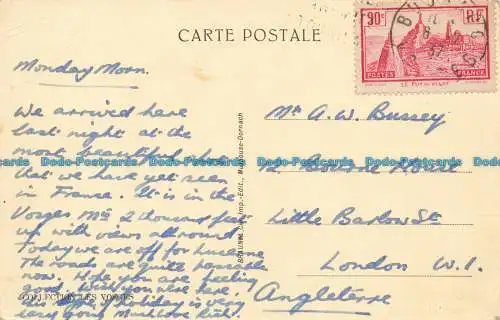 CARTE POSTALE
90c RF
POSTES FRANCE
LE PUY-EN-VELAY
Monday Morn.
We arrived here
last night at the
most beautiful place
that we have yet seen
in France. It is in the
Vosges Mts 2 thousand feet
up with views all round.
Today we are off for Lucerne
The roads are quite passable
now. Hope you are feeling
good. Wish you were here
holiday is very
Much love
COLLECTION LES VOSGES
BRAUN & Cie, Imp.-Edit., Mulhouse-Dornach
Mr A. W. Bussey
12 Bourne House
Little Barlow St
London W.1.
Angleterre
Postcards-Data Postcards-Data Postcards-Data